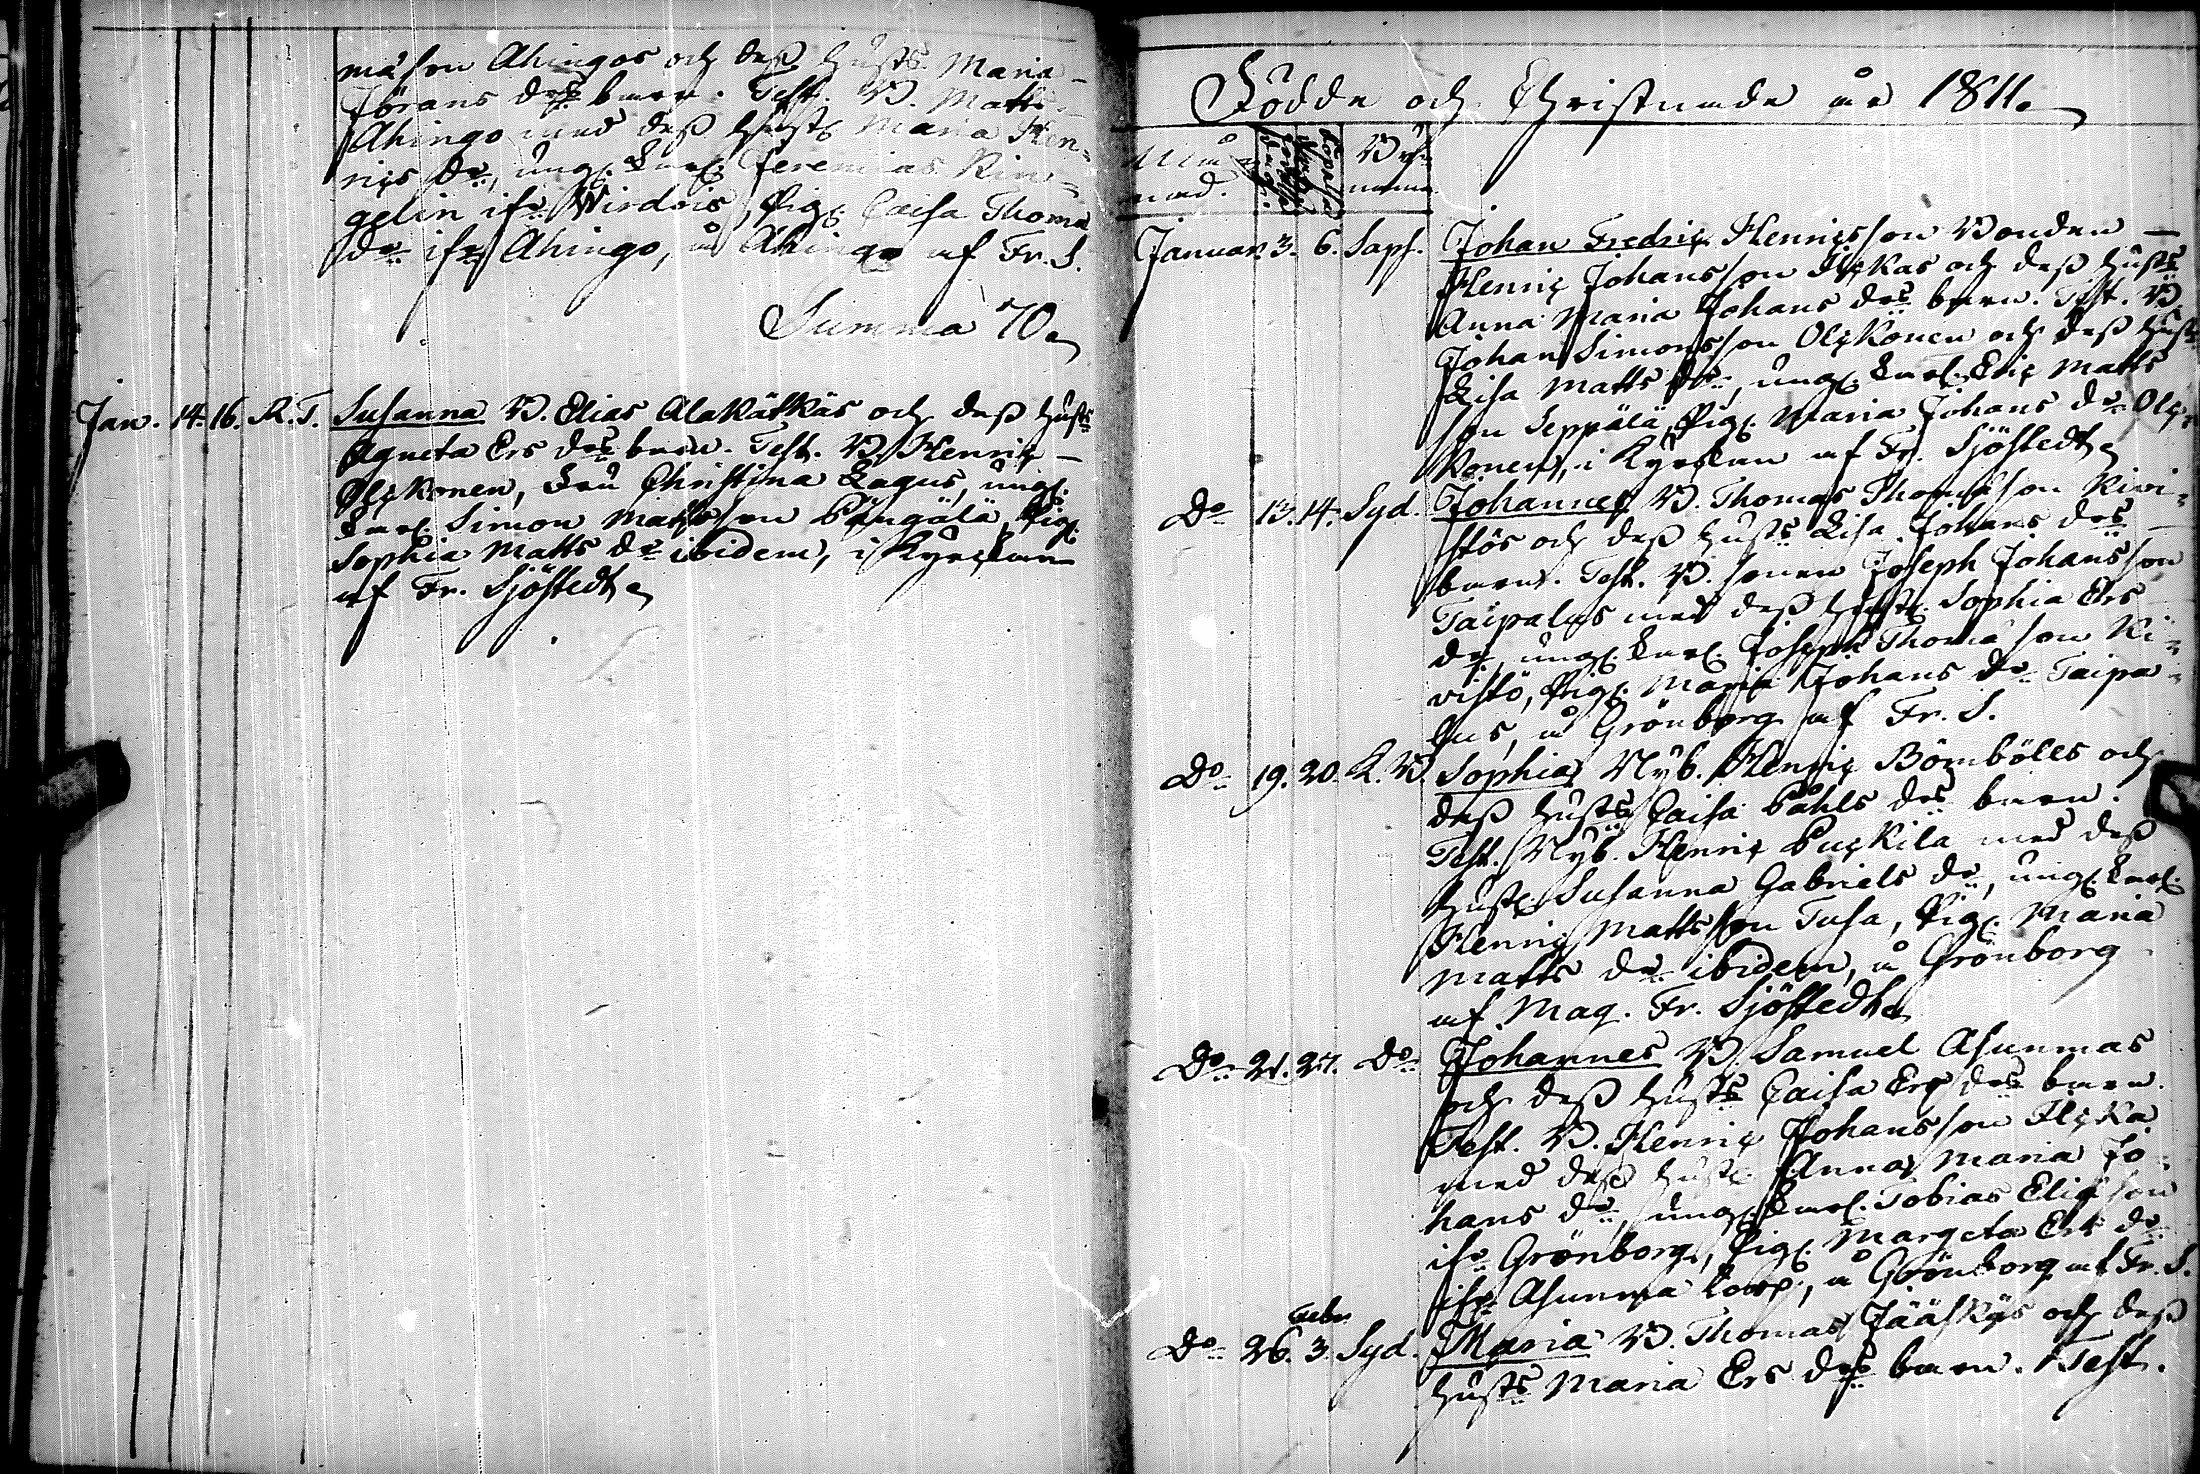 måson Ahingos och dess hust:s Maria
Jörans d:rs barn. Test. B. Matts
Ahingo med dess hust. Maria Hen=
rics d:r, ungk. Carl Jeremias Rin=
gelin ifr. Wirdois, Pig. Caisa Thoma
d:r ifr. Ahingo, å Ahingo af Fr. S.
Summa 70.
Jan. 14. 16. R. T. Susanna B. Elias Alakätkäs och dess hust:s
Agneta Ers d:rs barn. Test. B. Henric
Olckonen, Christina Lagus, ungk.
Simon Mattsson Pengälä, Pig.
Sophia Matts d:r ibidem, i Kyrckan
af Fr. Sjöstedt
Födde och Christnade år 1811.
Må=
nad.
Januar. 3. 6. Sapf. Johan Fredric Henricsson Bonden
Henric Johansson Ilckas och dess hust:s
Anna Maria Johans d:rs barn. Test. B.
Johan Simonsson Olckonen och dess hust.
Lisa Matts d:r, ungk. Eric Matts
son Seppälä, Pig. Maria Johans d:r Olc=
konen, i Kyrckan af Fr. Sjöstedt
D:o 13. 14. Syd. Johannes B. Thomas Thomasson Kivi=
stös och dess hust:s Lisa Johans d:rs
barn. Test. B. sonen Joseph Johansson
Taipalus med dess hust. Sophia Ers
d:r, ungk. Joseph Thomason Ki=
vistö, Pig. Maria Johans d:r Taipa=
lus, å Grönborg af Fr. S.
D:o 19. 20. R. B. Sophia Nyb. Henric Bömböles och
dess hust:s Caisa Påhls d:rs barn.
Test. Nyb. Henric Puckila med dess
hust. Susanna Gabriels d:r, ungk.
Henric Mattsson Tusa, Pig. Maria
Matts d:r ibidem, å Grönborg
af Mag. Fr. Sjöstedt
D:o 21. 27. D:o Johannes B. Samuel Asunmas
och dess hust:s Caisa Ers d:rs barn.
Test. B. Henric Johansson Ilcka
med dess hust. Anna Maria Jo=
hans d:r, ungk. Tobias Eliasson
ifr. Grönborg, Pig. Margeta Ers d:r
ifr. Asunma, å Grönborg af Fr. S.
Febr.
D:o 26. 3. Syd. Maria B. Thomas Jääskös och dess
hust:s Maria Ers d:rs barn. Test.